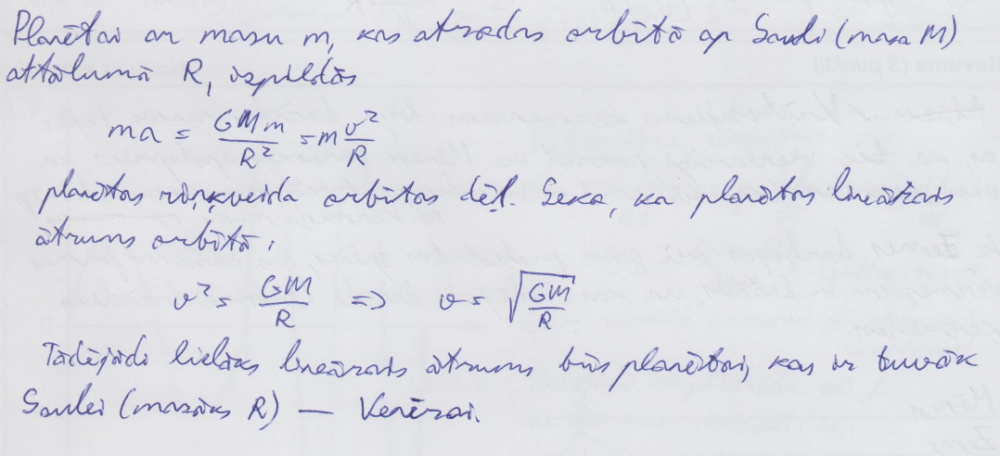 Planētai ar masu m, kas atrodas orbītā ap Sauli (masa M)
attālumā R, izpildās
ma = GMm/R² = m v²/R
planētas riņķveida orbītas dēļ. Seko, ka planētas lineārais
ātrums orbītā:
v² = GM/R => v = √(GM/R)
Tādējādi lielāks lineārais ātrums būs planētai, kas ir tuvāk
Saulei (mazāks R) — Venērai.